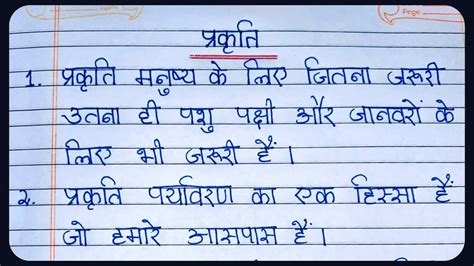 प्रकृति
1. प्रकृति मनुष्य के लिए जितना जरूरी
उतना ही पशु पक्षी और जानवरों के
लिए भी जरूरी हैं ।
२. प्रकृति पर्यावरण का एक हिस्सा हैं
जो हमारे आसपास हैं ।